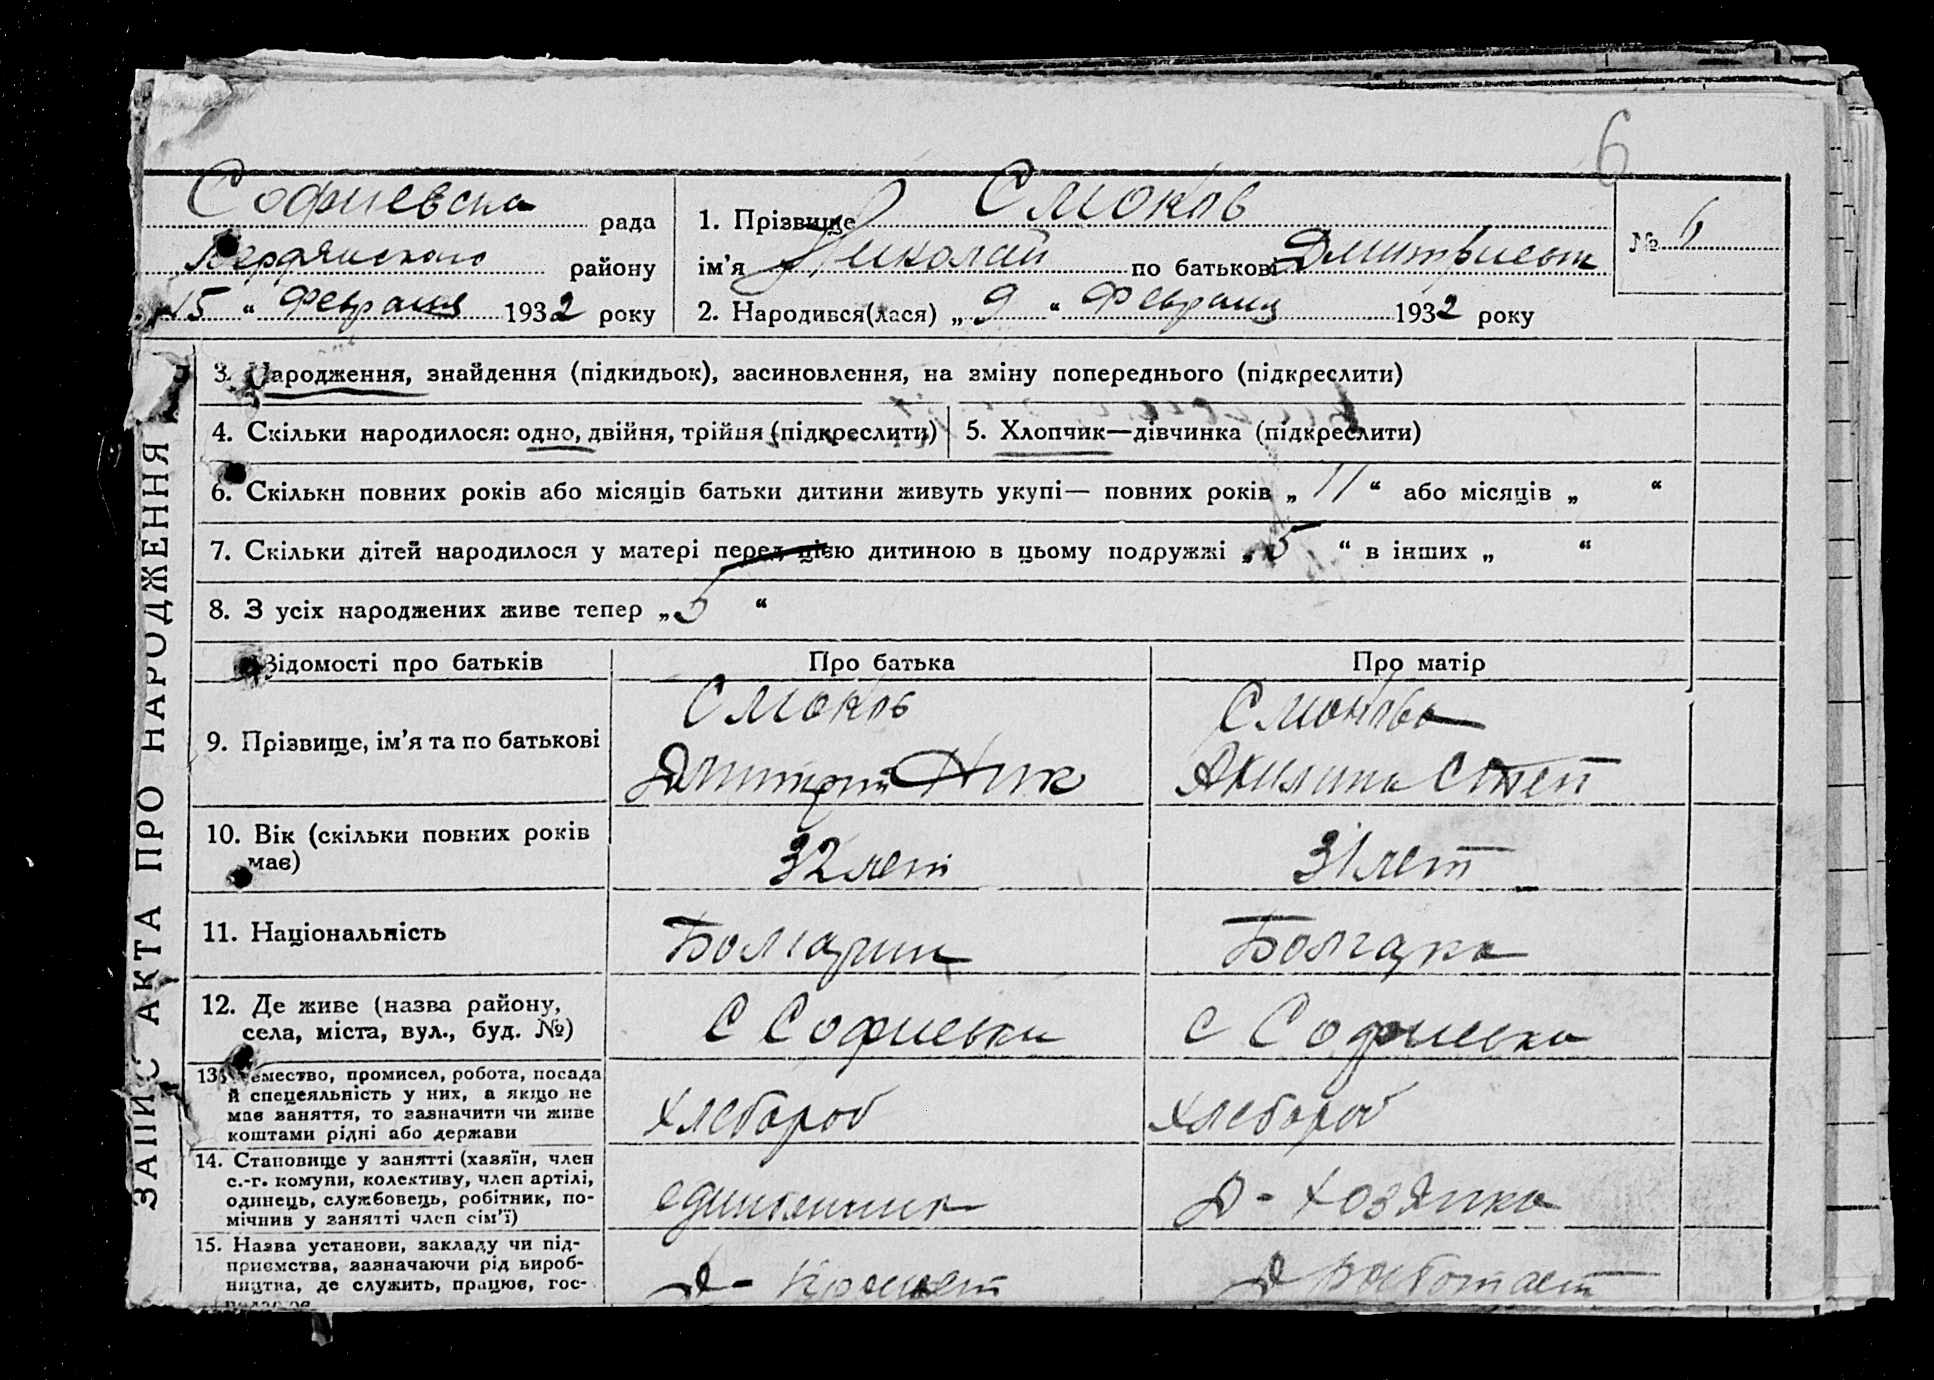 6
Софиевска рада
Бердянского району
"15" Февраля 1932 року
1. Прізвище Смоков
ім'я Николай по батькові Дмитриевич
№ 6
2. Народився(лася) „9“ Февраля 1932 року
ЗАПИС АКТА ПРО НАРОДЖЕННЯ
3. Народження, знайдення (підкидьок), засиновлення, на зміну попереднього (підкреслити)
4. Скільки народилося: одно, двійня, трійня (підкреслити)
5. Хлопчик—дівчинка (підкреслити)
6. Скільки повних років або місяців батьки дитини живуть укупі— повних років „11“ або місяців „ “
7. Скільки дітей народилося у матері перед цією дитиною в цьому подружжі „5“ в інших „ “
8. З усіх народжених живе тепер „5“
Відомості про батьків Про батька Про матір
9. Прізвище, ім'я та по батькові
Смоков
Дмитрий Ник
Смокова
Акилина Степ
10. Вік (скільки повних років
має)
32 лет
31 лет
11. Національність
Болгарин
Болгарка
12. Де живе (назва району,
села, міста, вул., буд. №)
С Софиевки
С Софиевка
13. Ремество, промисел, робота, посада
й спецеяльність у них, а якщо не
має заняття, то зазначити чи живе
коштами рідні або держави
хлебороб
хлебороб
14. Становище у занятті (хазяїн, член
с.-г. комуни, колективу, член артілі,
одинець, службовець, робітник, по-
мічник у занятті член сім'ї)
единоличник
Д-хозяйка
15. Назва установи, закладу чи під-
приємства, зазначаючи рід вироб-
ництва, де служить, працює, гос-
Д-
Работает